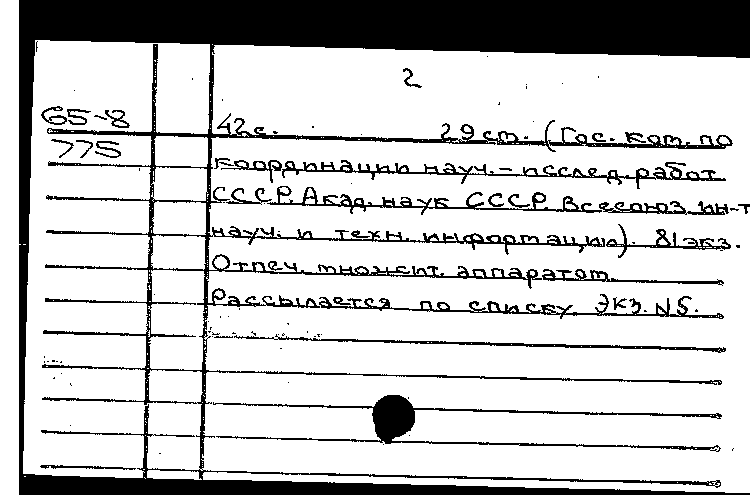 2
65-8 42с. 29 см. (Гос. ком. по
775 координации науч.-исслед. работ
СССР. Акад. наук СССР. Всесоюз. ин-т
науч. и техн. информации). 81 экз.
Отпеч. множит. аппаратом.
Рассылается по списку. Экз. N5.